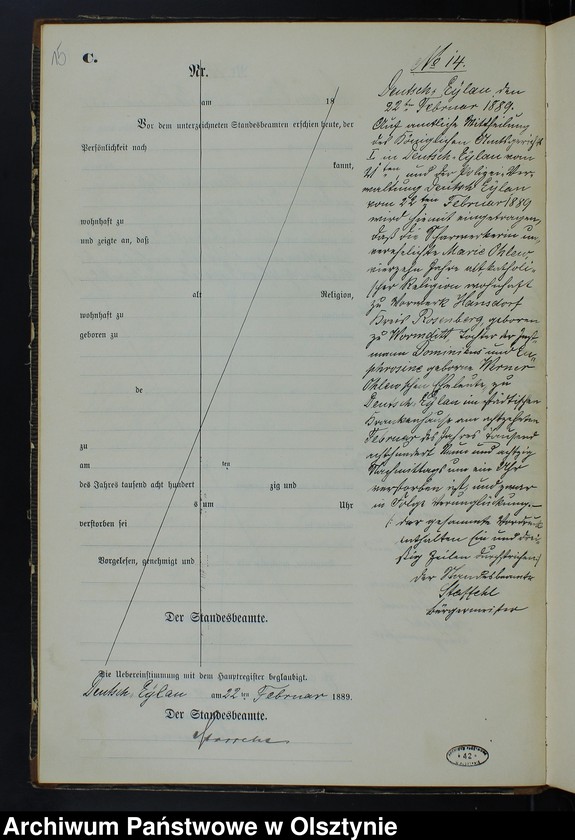 15
C.
Nr.
am 18
Vor dem unterzeichneten Standesbeamten erschien heute, der
Persönlichkeit nach
kannt,
wohnhaft zu
und zeigte an, daß
alt Religion,
wohnhaft zu
geboren zu
de
zu
am ten
des Jahres tausend acht hundert zig und
um Uhr
verstorben sei
Vorgelesen, genehmigt und
Der Standesbeamte.
Die Uebereinstimmung mit dem Hauptregister beglaubigt.
Deutsch Eylau am 22 ten Februar 1889.
Der Standesbeamte.
No 14.
Deutsch Eylau, den
22ten Februar 1889.
Auf amtliche Mittheilung
des Königlichen Amtsgerichts
I in Deutsch-Eylau vom
21ten und der Polizei-Ver-
waltung Deutsch Eylau
vom 22ten Februar 1889
wird hiermit eingetragen,
daß die Scharwerkerin un-
verehelichte Marie Ohlew
vierzehn Jahre alt, katholi-
scher Religion wohnhaft
zu Vorwerk Hansdorf
Kreis Rosenberg, geboren
zu Wormditt, Tochter der Inst-
mann Dominicus und Eu-
phrosine geborne Werner
Ohlewschen Eheleute, zu
Deutsch Eylau im städtischen
Krankenhause am achtzehnten
Februar des Jahres tausend
achthundert neun und achtzig
Nachmittags um ein Uhr
verstorben ist, und zwar
in Folge Verunglückung.
der gesammte Vordruck
enthalten ein und drei-
ßig Zeilen durchstrichen
Der Standesbeamte
Staffehl
Bürgermeister
ARCHIWUM PAŃSTWOWE
42
Archiwum Państwowe w Olsztynie